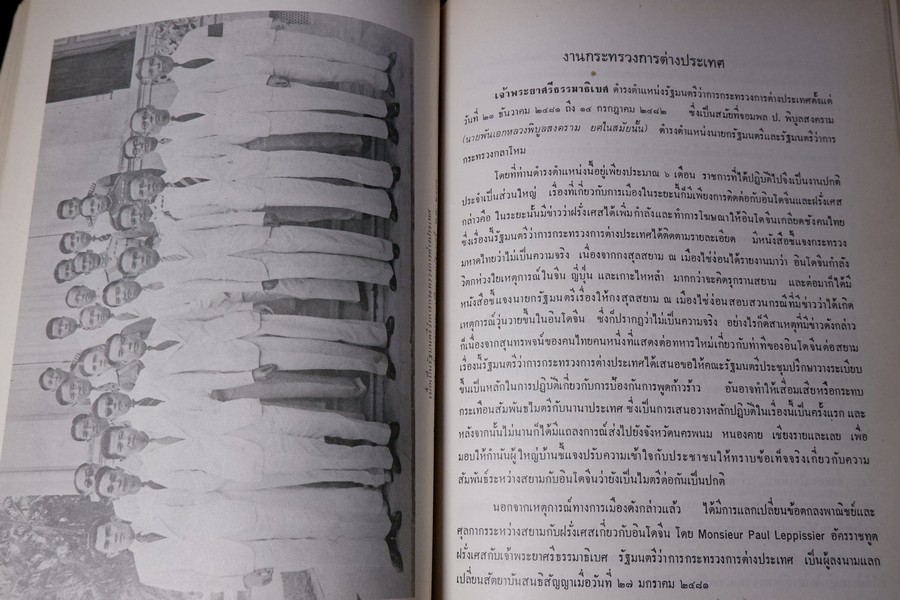 งานกระทรวงการต่างประเทศ
เจ้าพระยาศรีธรรมาธิเบศ ดำรงตำแหน่งรัฐมนตรีว่าการกระทรวงการต่างประเทศตั้งแต่
วันที่ ๒๑ ธันวาคม ๒๔๘๑ ถึง ๑๔ กรกฎาคม ๒๔๘๒ ซึ่งเป็นสมัยที่จอมพล ป. พิบูลสงคราม
(นายพันเอกหลวงพิบูลสงคราม ยศในสมัยนั้น) ดำรงตำแหน่งนายกรัฐมนตรีและรัฐมนตรีว่าการ
กระทรวงกลาโหม
โดยที่ท่านดำรงตำแหน่งนี้อยู่เพียงประมาณ ๖ เดือน ราชการที่ได้ปฏิบัติไปจึงเป็นงานปกติ
ประจำเป็นส่วนใหญ่ เรื่องที่เกี่ยวกับการเมืองในระยะนี้ก็มีเพียงการติดต่อกับอินโดจีนและฝรั่งเศส
กล่าวคือ ในระยะนั้นมีข่าวว่าฝรั่งเศสได้เพิ่มกำลังและทำการโฆษณาให้อินโดจีนเกลียดชังคนไทย
ซึ่งเรื่องนี้รัฐมนตรีว่าการกระทรวงการต่างประเทศได้ติดตามรายละเอียด มีหนังสือชี้แจงกระทรวง
มหาดไทยว่าไม่เป็นความจริง เนื่องจากกงสุลสยาม ณ เมืองไซ่ง่อนได้รายงานมาว่า อินโดจีนกำลัง
วิตกห่วงใยเหตุการณ์ในจีน ญี่ปุ่น และเกาะไหหลำ มากกว่าจะคิดรุกรานสยาม และต่อมาก็ได้มี
หนังสือชี้แจงนายกรัฐมนตรีเรื่องให้กงสุลสยาม ณ เมืองไซ่ง่อนสอบสวนกรณีที่มีข่าวว่าได้เกิด
เหตุการณ์วุ่นวายขึ้นในอินโดจีน ซึ่งก็ปรากฏว่าไม่เป็นความจริง อย่างไรก็ดีสาเหตุที่มีข่าวดังกล่าว
ก็เนื่องจากสุนทรพจน์ของคนไทยคนหนึ่งที่แสดงต่อทหารใหม่เกี่ยวกับท่าทีของอินโดจีนต่อสยาม
เรื่องนี้รัฐมนตรีว่าการกระทรวงการต่างประเทศได้เสนอขอให้คณะรัฐมนตรีประชุมปรึกษาวางระเบียบ
ขึ้นเป็นหลักในการปฏิบัติเกี่ยวกับการป้องกันการพูดก้าวร้าว อันอาจทำให้เสื่อมเสียหรือกระทบ
กระเทือนสัมพันธไมตรีกับนานาประเทศ ซึ่งเป็นการเสนอวางหลักปฏิบัติในเรื่องนี้เป็นครั้งแรก และ
หลังจากนั้นไม่นานก็ได้มีแถลงการณ์ส่งไปยังจังหวัดนครพนม หนองคาย เชียงรายและเลย เพื่อ
มอบให้กำนันผู้ใหญ่บ้านชี้แจงปรับความเข้าใจกับประชาชนให้ทราบข้อเท็จจริงเกี่ยวกับความ
สัมพันธ์ระหว่างสยามกับอินโดจีนว่ายังเป็นไมตรีต่อกันเป็นปกติ
นอกจากเหตุการณ์ทางการเมืองดังกล่าวแล้ว ได้มีการแลกเปลี่ยนข้อตกลงพาณิชย์และ
ศุลกากรระหว่างสยามกับฝรั่งเศสเกี่ยวกับอินโดจีน โดย Monsieur Paul Leppissier อัครราชทูต
ฝรั่งเศสกับเจ้าพระยาศรีธรรมาธิเบศ รัฐมนตรีว่าการกระทรวงการต่างประเทศ เป็นผู้ลงนามแลก
เปลี่ยนสัตยาบันสนธิสัญญาเมื่อวันที่ ๒๗ มกราคม ๒๔๘๑